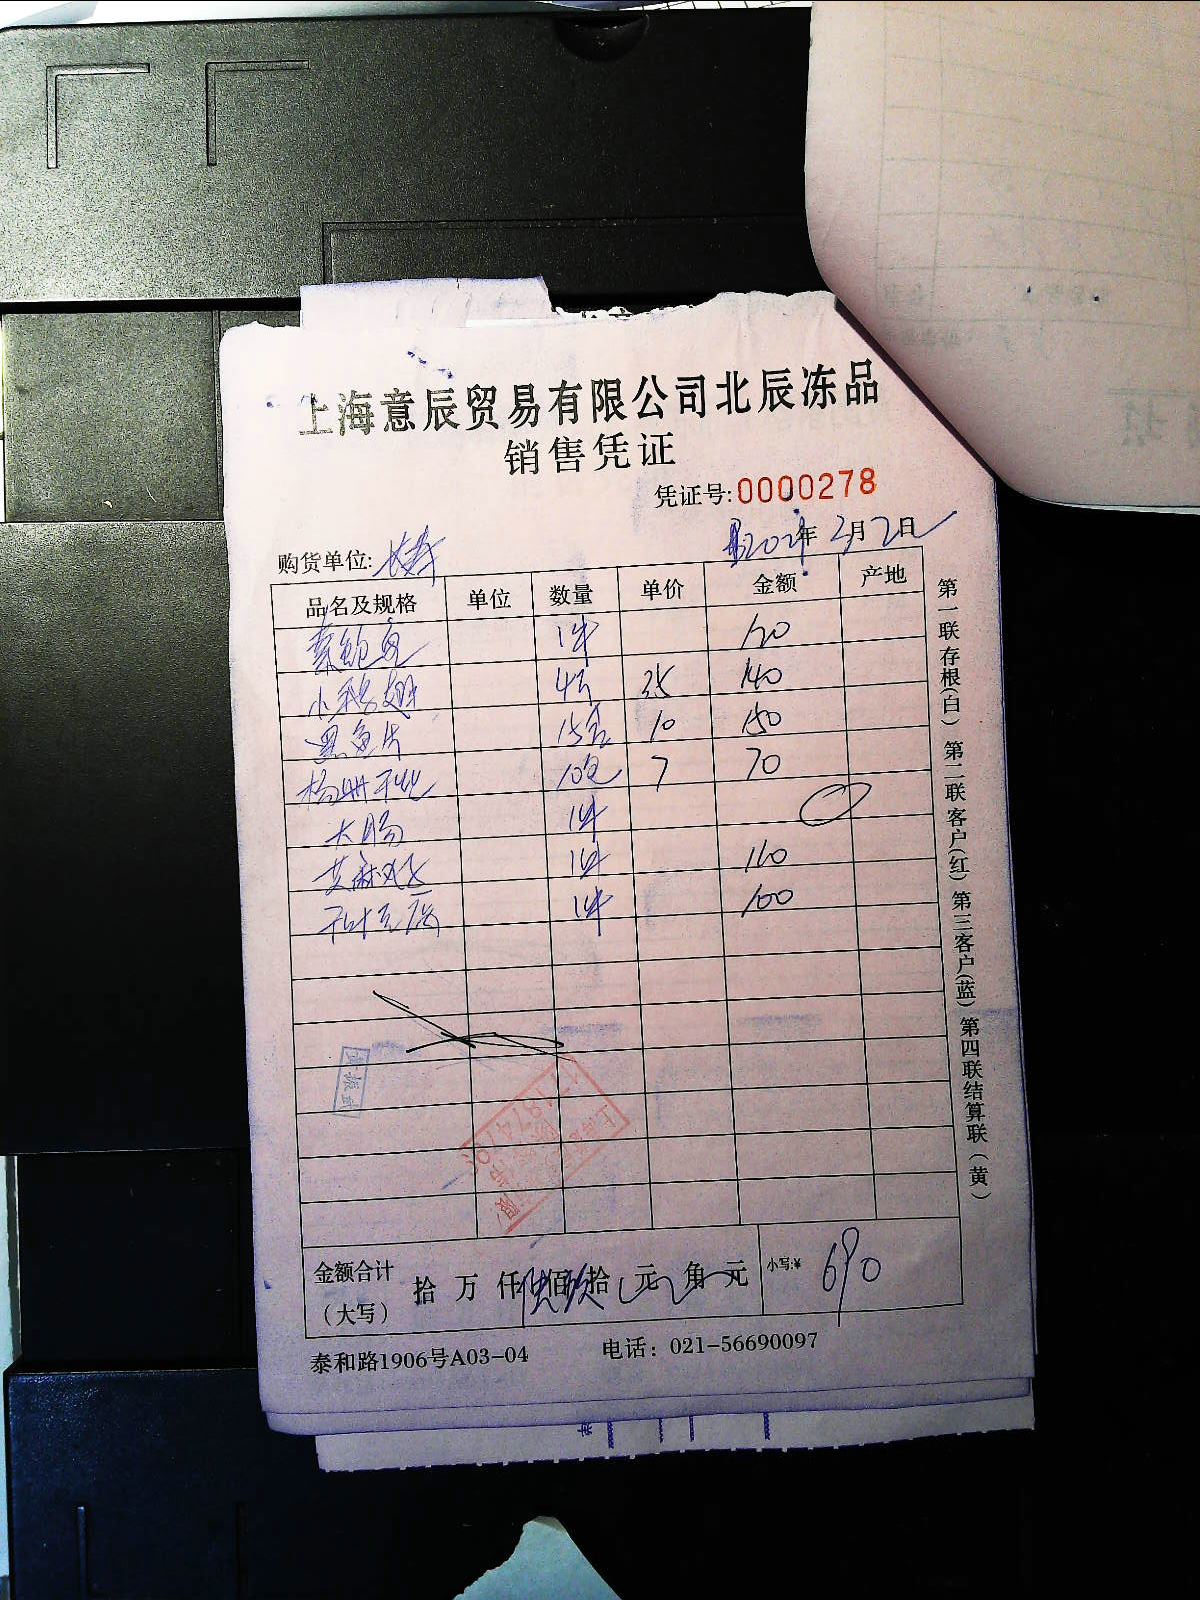 上海意辰贸易有限公司北辰冻品
销售凭证
凭证号:0000278
购货单位: 年 2月2日
品名及规格 单位 数量 单价 金额 产地
素鲍鱼 1件 120
小 翅 4 35 140
黑鱼片 15包 10 150
10包 7 70
大肠 1件
芝麻 1件 110
1件 100
金额合计
(大写) 拾 万 仟 佰 拾 元 角 元 小写:¥ 690
泰和路1906号A03-04 电话: 021-56690097
第一联存根(白) 第二联客户(红) 第三客户(蓝) 第四联结算联(黄)